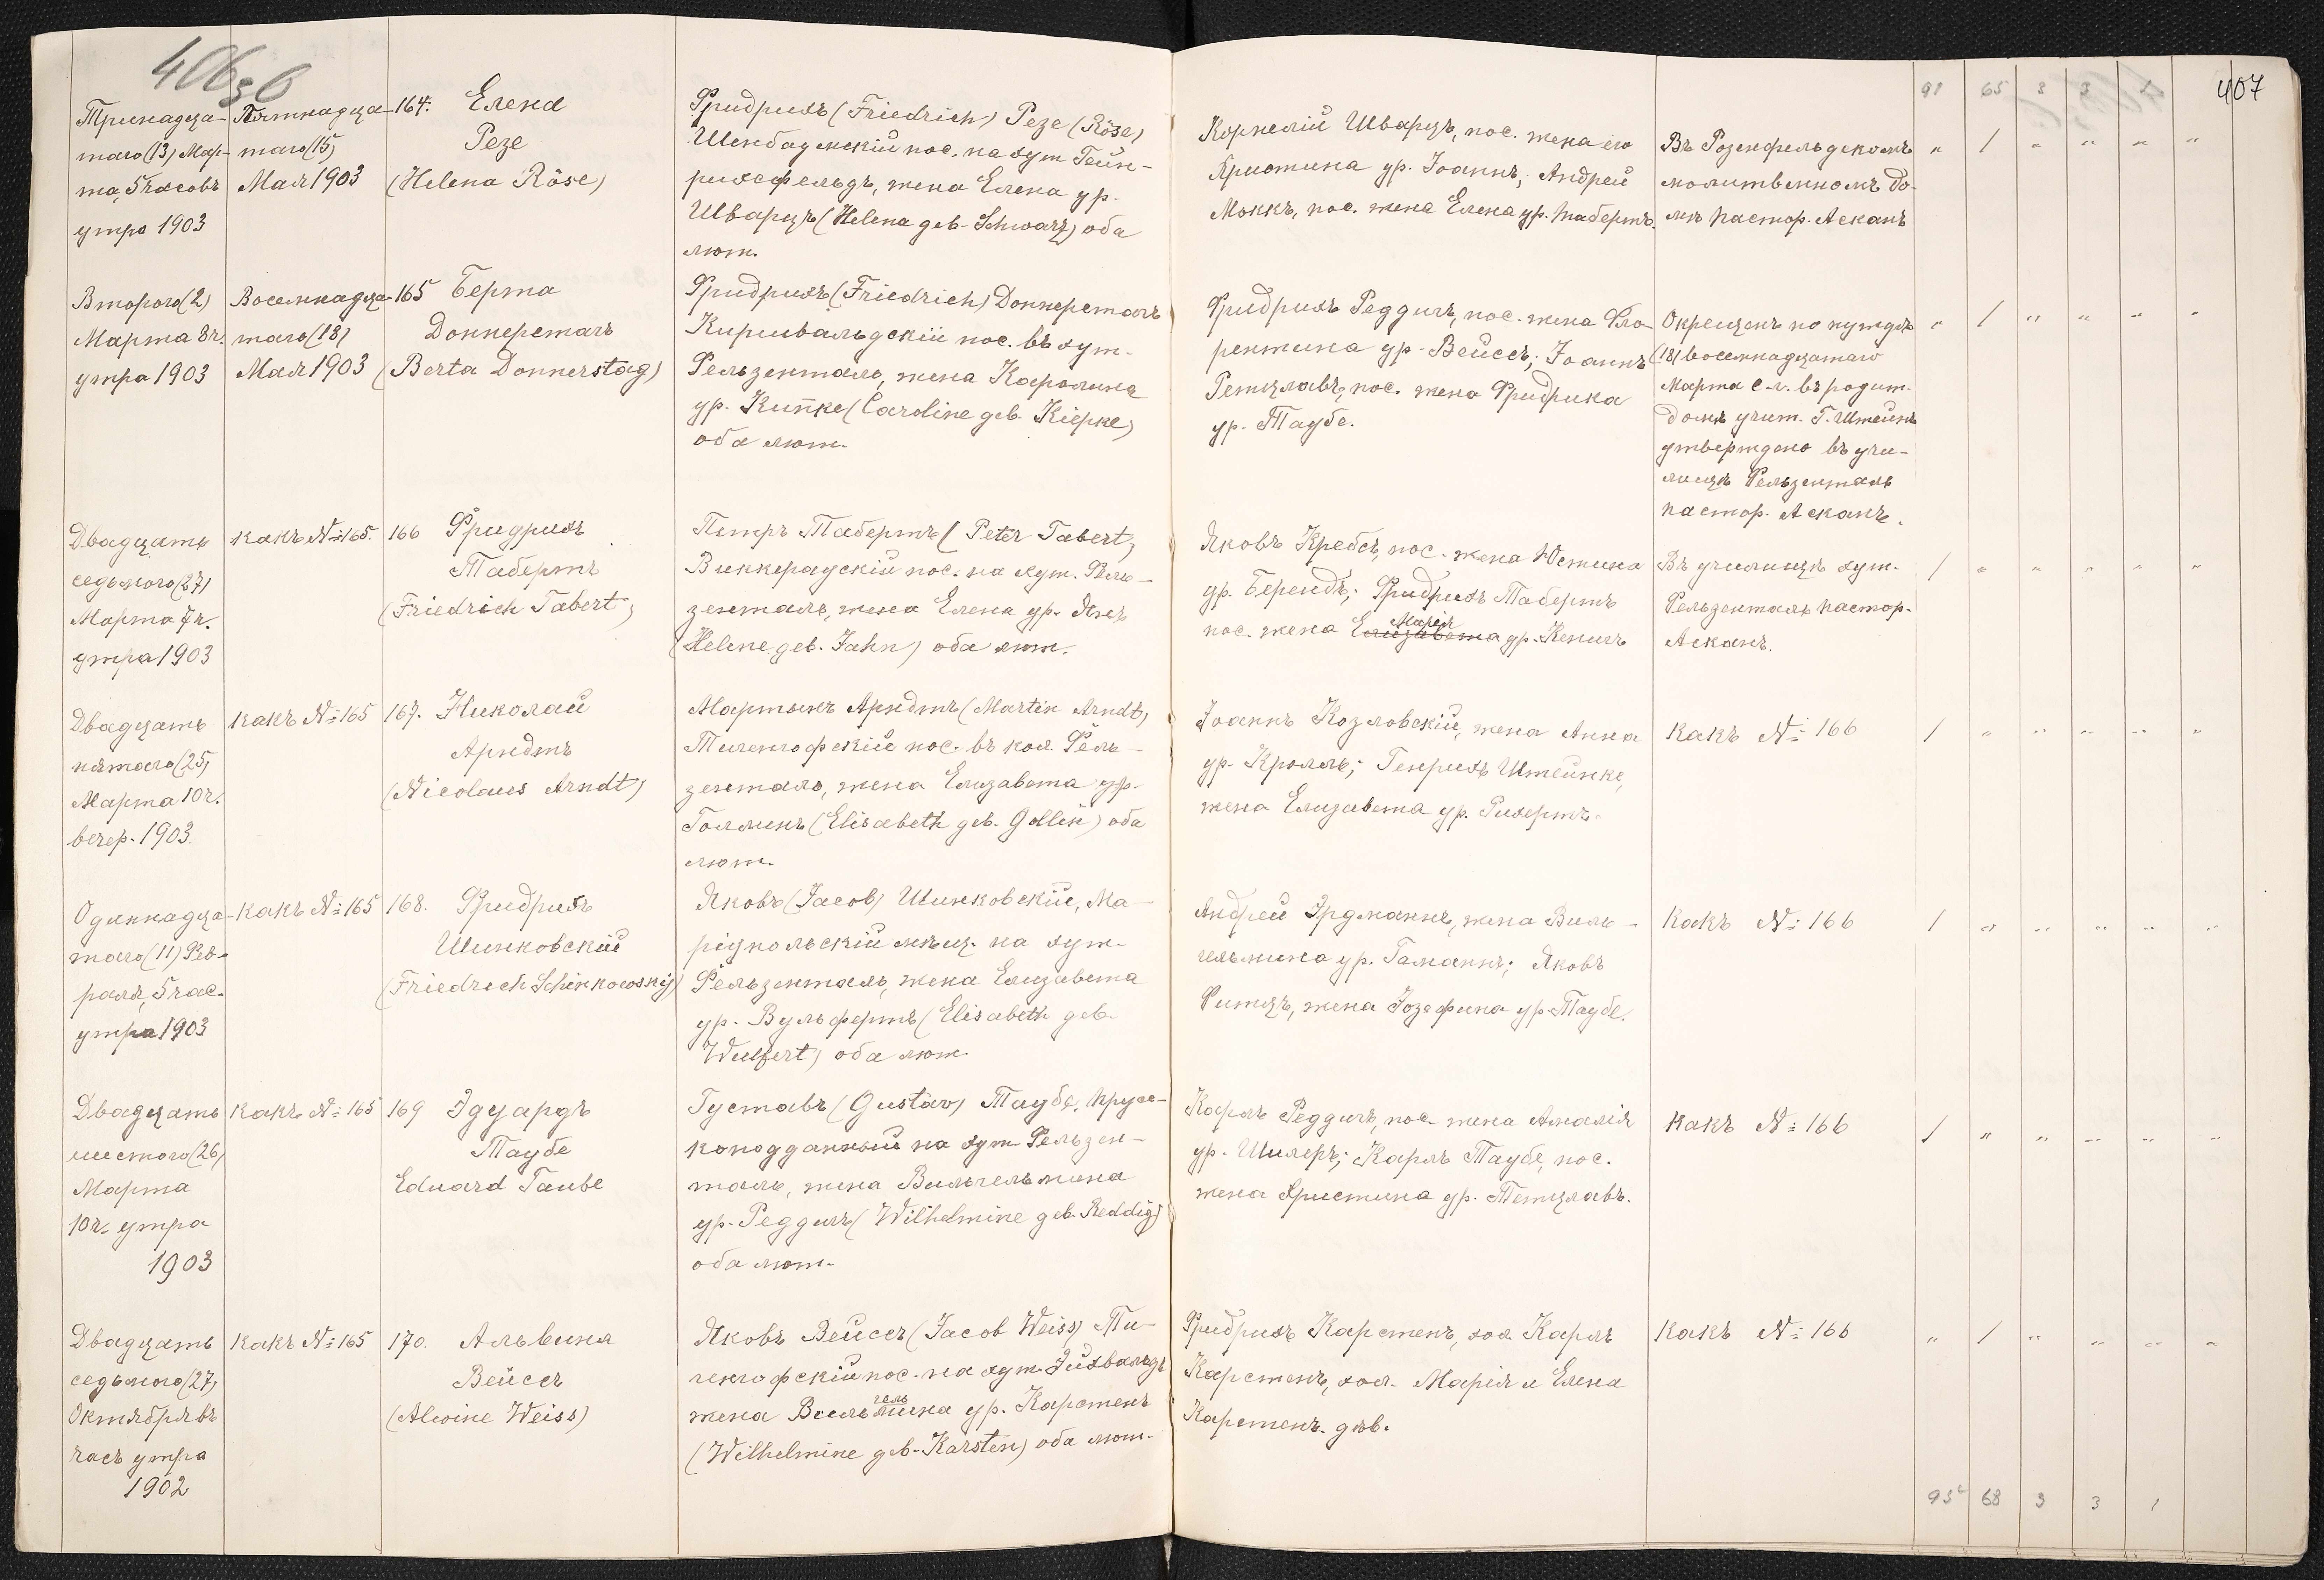 406 об
407
91 65 3 3 1
Тринадца-
таго (13) Мар-
та, 5 часовъ
утра 1903
Пятнадца-
таго (15)
Мая 1903
164. Елена
Резе
(Helena Röse)
Фридрихъ (Friedrich) Резе (Röse)
Шенбаумскій пос. на хут. Гейн-
рихсфельдъ, жена Елена ур.
Шварцъ (Helena geb. Schwarz) оба
лют.
Корнелій Шварцъ, пос. жена его
Христина ур. Іоаннъ; Андрей
Моккъ, пос. жена Елена ур. Табертъ.
Въ Розенфельдскомъ
молитвенномъ до-
мѣ пастор. Асканъ
" 1 " " " "
Второго (2)
Марта 8 ч.
утра 1903
Восемнадца-
таго (18)
Мая 1903
165 Берта
Доннерстагъ
(Berta Donnerstag)
Фридрихъ (Friedrich) Доннерстагъ
Киршвальдскій пос. въ хут.
Фельзенталь, жена Каролина
ур. Кипке (Caroline geb. Kiepke)
оба лют.
Фридрихъ Реддигъ, пос. жена Фло-
рентина ур. Вейссъ; Іоаннъ
Тетцлавъ, пос. жена Фридрика
ур. Таубе.
Окрещенъ по нуждѣ
(18) восемнадцатаго
Марта с. г. въ родит.
домѣ учит. Г. Штейнъ
утверждено въ учи-
лищѣ Фельзенталь
пастор. Асканъ.
" 1 " " " "
Двадцать
седьмого (27)
Марта 7 ч.
утра 1903
какъ №: 165.
166 Фридрихъ
Табертъ
(Friedrich Tabert)
Петръ Табертъ (Peter Tabert)
Виккераускій пос. на хут. Фель-
зенталь, жена Елена ур. Янъ
(Helene geb. Jahn) оба лют.
Яковъ Кребсъ, пос. жена Юстина
ур. Берендъ; Фридрихъ Табертъ
Марія
пос. жена Елизавета ур. Кенигъ
Въ училищѣ хут.
Фельзенталь пастор.
Асканъ.
1 " " " " "
Двадцать
пятаго (25)
Марта 10 ч.
вечер. 1903.
какъ №: 165
167. Николай
Арндтъ
(Nicolaus Arndt)
Мартынъ Арндтъ (Martin Arndt)
Тигенгофскій пос. въ кол. Фель-
зенталь, жена Елизавета ур.
Голлинъ (Elisabeth geb. Gollin) оба
лют.
Іоаннъ Козловскій, жена Анна
ур. Кролль; Генрихъ Штейнке,
жена Елизавета ур. Рихертъ.
какъ №: 166
1 " " " " "
Одиннадца-
таго (11) Фев-
раля, 5 час.
утра 1903
какъ №: 165
168. Фридрихъ
Шинковскій
(Friedrich Schinkowsky)
Яковъ (Jacob) Шинковскій, Ма-
ріупольскій мѣщ. на хут.
Фельзенталь, жена Елизавета
ур. Вульфертъ (Elisabeth geb.
Wulfert) оба лют.
Андрей Эрдманнъ, жена Виль-
гельмина ур. Гаманнъ; Яковъ
Фитцъ, жена Іозефина ур. Таубе.
какъ №: 166
1 " " " " "
Двадцать
шестого (26)
Марта
10 ч. утра
1903
какъ №: 165
169 Эдуардъ
Таубе
Eduard Taube
Густавъ (Gustav) Таубе, прус-
коподданный на хут. Фельзен-
таль, жена Вильгельмина
ур. Реддигъ (Wilhelmine geb. Reddig)
оба лют.
Карлъ Реддигъ, пос. жена Амалія
ур. Шилеръ; Карлъ Таубе, пос.
жена Христина ур. Тетцлавъ.
какъ №: 166
1 " " " " "
Двадцать
седьмого (27)
Октября въ
часъ утра
1902
какъ №: 165
170. Альвина
Вейссъ
(Alwine Weiss)
Яковъ Вейссъ (Jacob Weiss) Ти-
генгофскій пос. на хут. Эйхвальдъ
гель
жена Вильмина ур. Карстенъ
(Wilhelmine geb. Karsten) оба лют.
Фридрихъ Карстенъ, хол. Карлъ
Карстенъ, хол. Марія и Елена
Карстенъ. дѣв.
какъ №: 166
" 1 " " " "
95 68 3 3 1